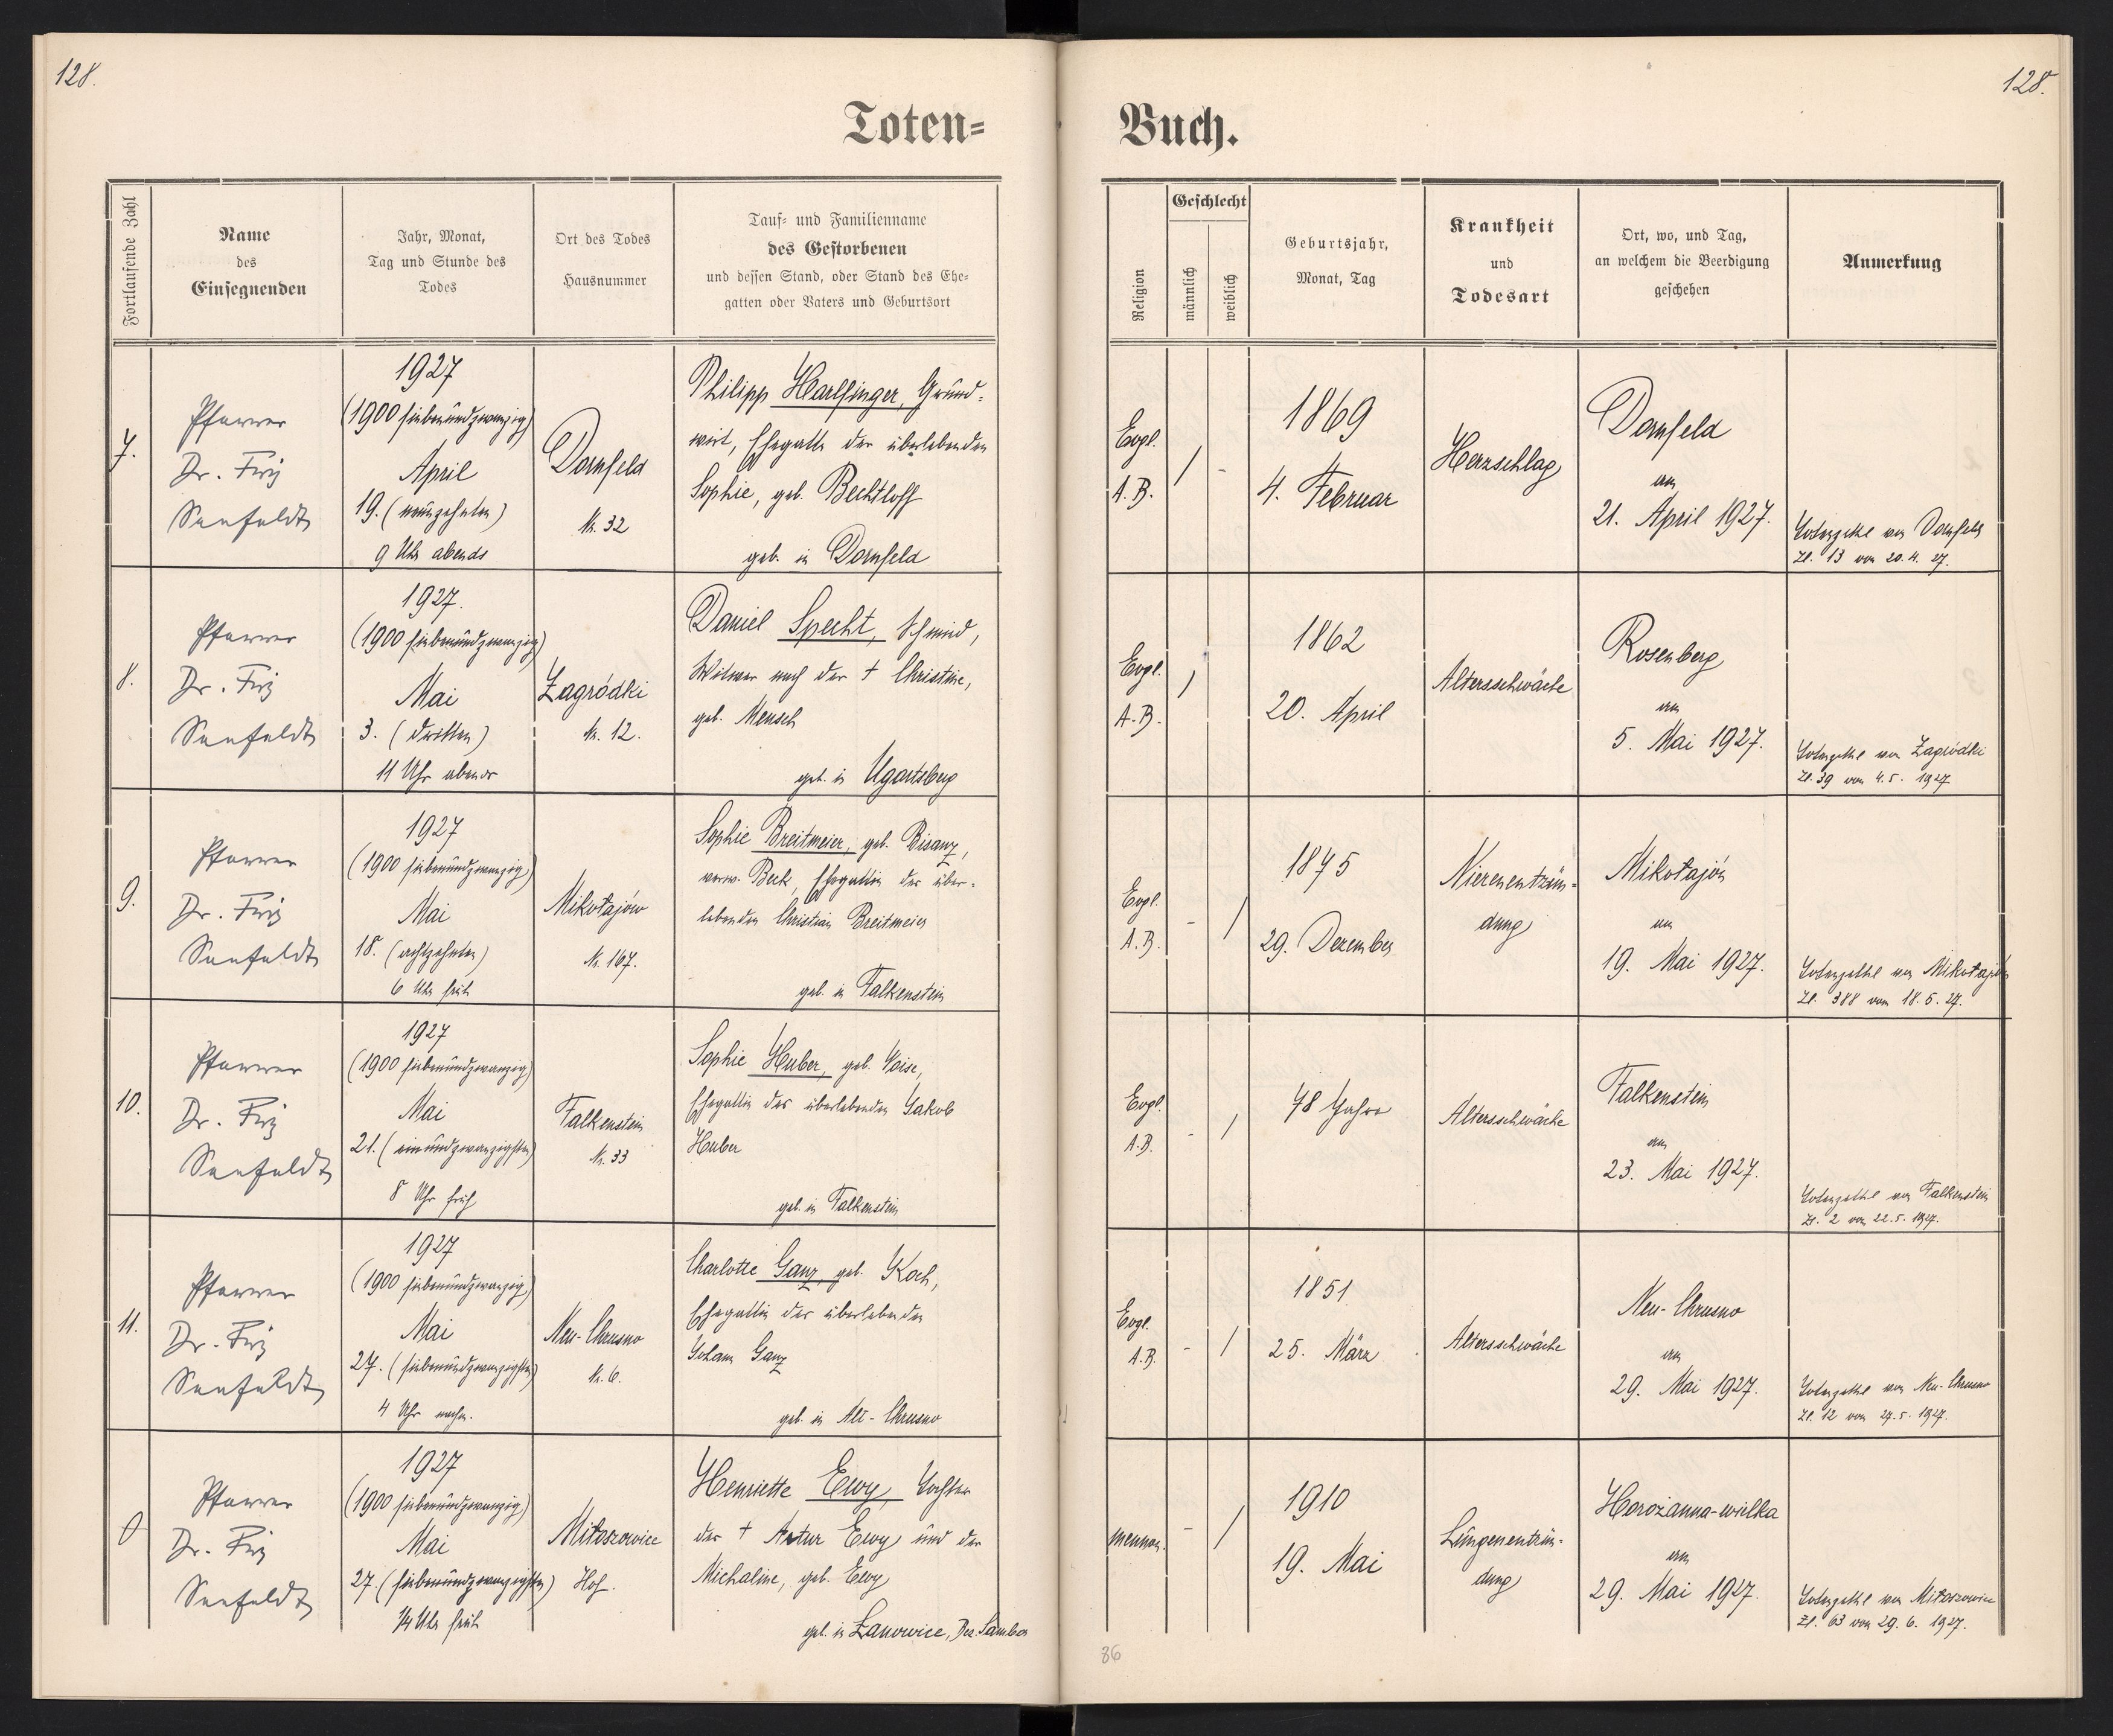 128.
128.
Toten=
Buch.
Fortlaufende Zahl
Name
des
Einsegnenden
Jahr, Monat,
Tag und Stunde des
Todes
Ort des Todes
Hausnummer
Tauf= und Familienname
des Gestorbenen
und dessen Stand, oder Stand des Ehe=
gatten oder Vaters und Geburtsort
Religion
Geschlecht
männlich
weiblich
Geburtsjahr,
Monat, Tag
Krankheit
und
Todesart
Ort, wo, und Tag,
an welchem die Beerdigung
geschehen
Anmerkung
7.
Pfarrer
Dr. Fritz
Seefeldt
1927
(1900 siebenundzwanzig)
April
19. (neunzehnten)
9 Uhr abends
Dornfeld
Nr. 32
Philipp Harlfinger, Grund=
wirt, Ehegatte der überlebenden
Sophie, geb. Bechtloff
geb. in Dornfeld
Evgl.
A.B.
/
-
1869
4. Februar
Herzschlag
Dornfeld
am
21. April 1927.
Totenzettel von Dornfeld
Zl. 13 vom 20.4.27.
8.
Pfarrer
Dr. Fritz
Seefeldt
1927.
(1900 siebenundzwanzig)
Mai
3. (dritten)
11 Uhr abends
Zagródki
Nr. 12.
Daniel Specht, Schmied,
Witwer nach der † Christine,
geb. Mensch
geb. in Ugartsberg
Evgl.
A.B.
/
1862
20. April
Altersschwäche
Rosenberg
am
5. Mai 1927.
Totenzettel von Zagródki
Zl. 39 vom 4.5.1927
9.
Pfarrer
Dr. Fritz
Seefeldt
1927
(1900 siebenundzwanzig)
Mai
18. (achtzehnten)
6 Uhr früh
Mikołajów
Nr. 167.
Sophie Breitmeier, geb. Bisanz,
verw. Beck, Ehegattin des über=
lebenden Christian Breitmeier
geb. in Falkenstein
Evgl.
A.B.
-
/
1875
29. Dezember
Nierenentzün=
dung
Mikołajów
am
19. Mai 1927.
Totenzettel von Mikołajów
Zl. 388 vom 18.5.27.
10.
Pfarrer
Dr. Fritz
Seefeldt
1927
(1900 siebenundzwanzig)
Mai
21. (einundzwanzigsten)
8 Uhr früh
Falkenstein
Nr. 33
Sophie Huber, geb. Voise,
Ehegattin des überlebenden Jakob
Huber
geb. in Falkenstein
Evgl.
A.B.
-
/
78 Jahre
Altersschwäche
Falkenstein
am
23. Mai 1927.
Totenzettel von Falkenstein
Zl. 2 vom 22.5.1927.
11.
Pfarrer
Dr. Fritz
Seefeldt
1927
(1900 siebenundzwanzig)
Mai
27. (siebenundzwanzigsten)
4 Uhr nachm.
Neu-Chrusno
Nr. 6.
Charlotte Ganz, geb. Koch,
Ehegattin des überlebenden
Johann Ganz
geb. in Alt-Chrusno
Evgl.
A.B.
-
/
1851
25. März
Altersschwäche
Neu-Chrusno
am
29. Mai 1927.
Totenzettel von Neu-Chrusno
Zl. 12 vom 27.5.1927.
0
Pfarrer
Dr. Fritz
Seefeldt
1927
(1900 siebenundzwanzig)
Mai
27. (siebenundzwanzigsten)
1/4 Uhr früh
Miłoszowice
Hof.
Henriette Ewy, Tochter
des † Artur Ewy und der
Michaline, geb. Ewy
geb. in Łanowice, Bez. Sambor
mennon.
-
/
1910
19. Mai
Lungenentzün=
dung
Horożanna-wielka
am
29. Mai 1927.
Totenzettel von Miłoszowice
Zl. 63 vom 29.6.1927.
86